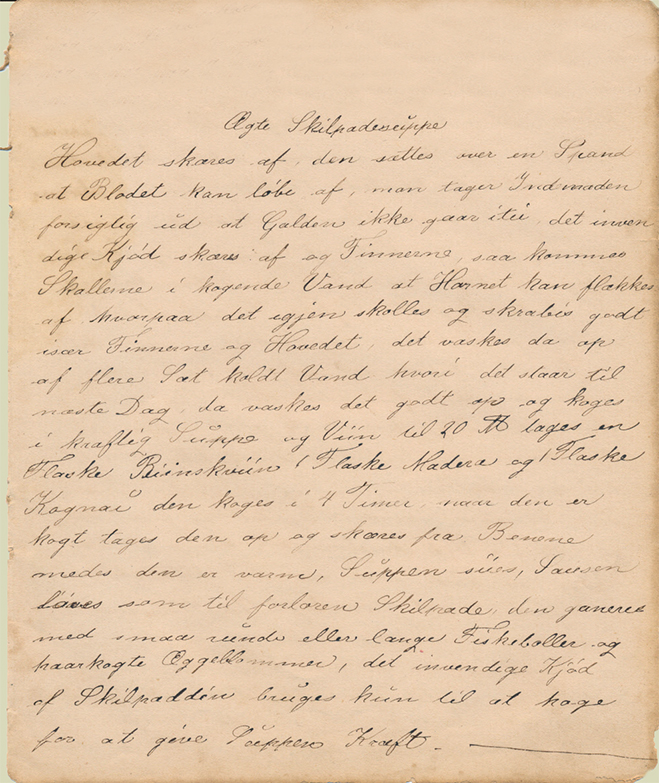 Ægte Skilpadesuppe
Hovedet skæres af, den sættes over en Spand
at Blodet kan löbe af, man tager Indmaden
forsigtig ud at Galden ikke gaar itu, det inven
dige Kjöd skæres af og Finnerne, saa kommes
Skallerne i kogende Vand at Hornet kan flækkes
af hvorpaa det igjen skolles og skrabes godt
især Finnerne og Hovedet, det vaskes da op
af flere Sæt koldt Vand hvori det staar til
næste Dag, da vaskes det godt op og koges
i kraftig Suppe og Viin til 20 ℔ tages en
Flaske Riinskviin 1 Flaske Madera og 1 Flaske
Kognai den koges i 4 Timer, naar den er
kogt tages den op og skæres fra Benene
medes den er varm, Suppen sües, Sausen
laves som til forloren Skilpade, den garneres
med smaa runde eller lange Fiskeboller og
haarkogte Æggeblommer, det invendige Kjöd
af Skilpadden bruges kun til at koge
for at give Suppen Kraft.